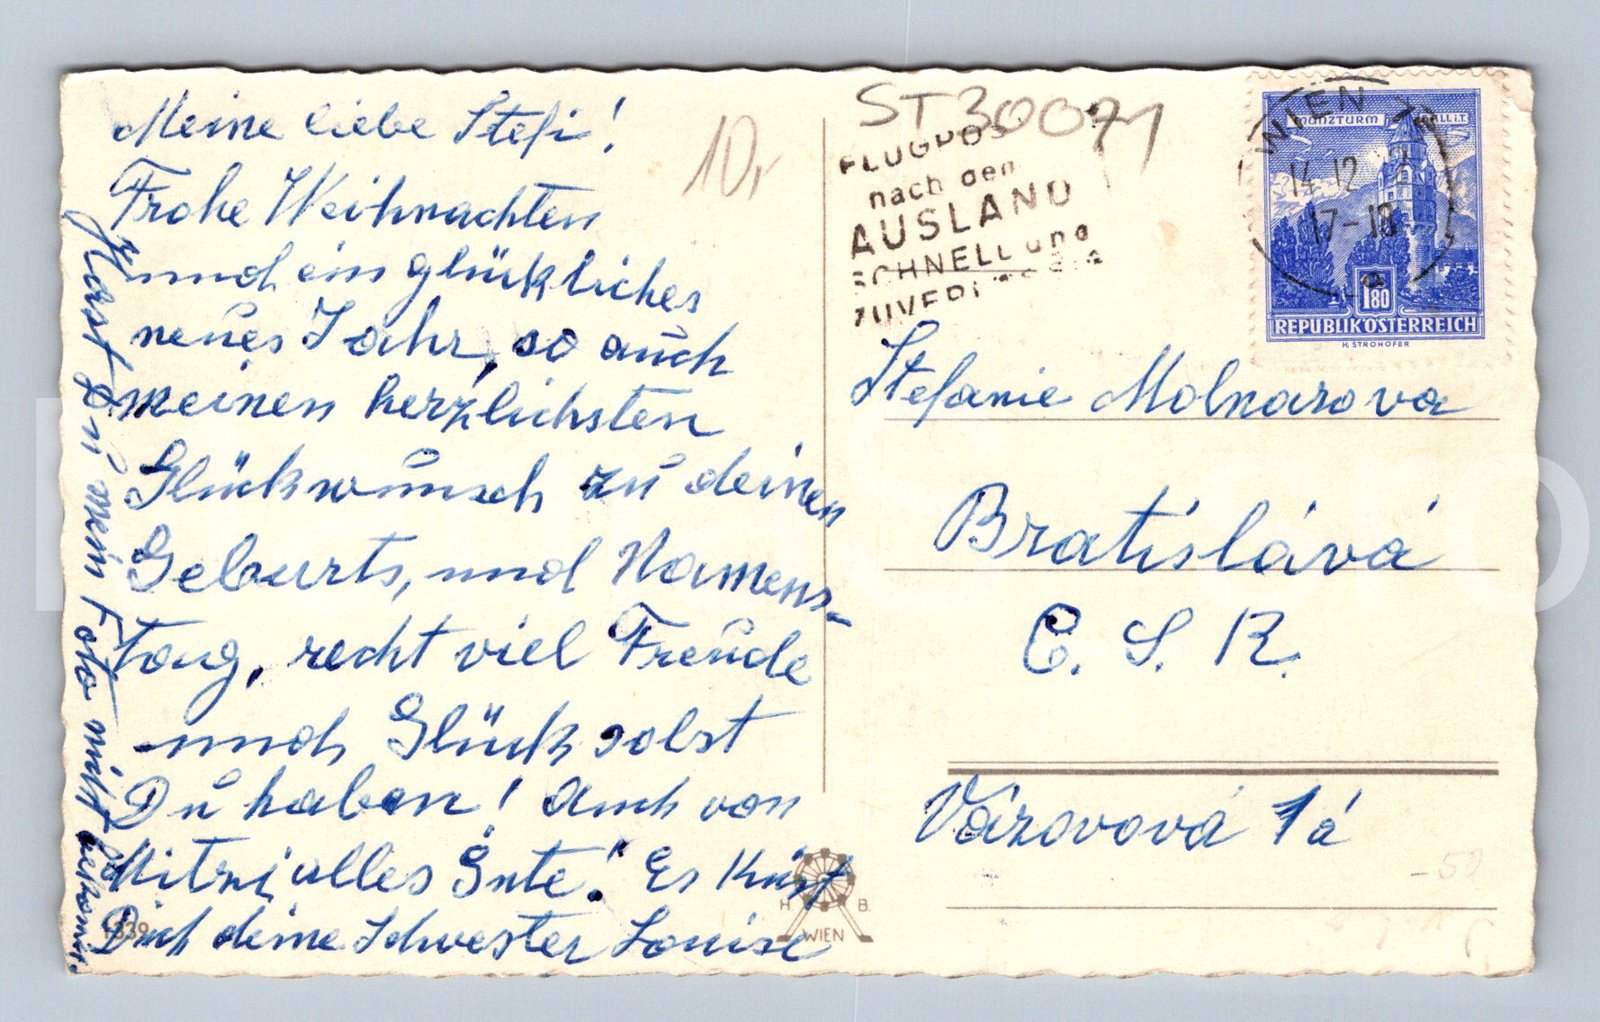 Meine liebe Stefi!
Frohe Weihnachten
und ein glückliches
neues Jahr, so auch
meinen herzlichsten
Glückwunsch zu deinen
Geburts, und Namens-
tag, recht viel Freude
und Glück solst
Du haben! Auch von
Mitzi alles Gute! Es Küst
Dich deine Schwester Louise
Hast Du mein Foto nikt bekomen.
1339
10,-
ST30071
FLUGPOST
nach den
AUSLAND
SCHNELL und
ZUVERLÄSSIG
WIEN
14.12
17-18
MÜNZTURM HALL i.T.
1.80
REPUBLIK ÖSTERREICH
H. STROHOFER
Stefanie Molnarova
Bratislává
Č. S. R.
Vázovová 1á
-50
H. B.
WIEN